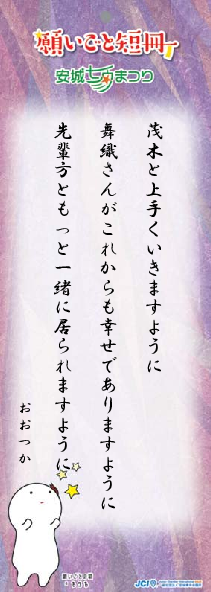 願いごと短冊
安城七夕まつり
茂木と上手くいきますように
舞織さんがこれからも幸せでありますように
先輩方ともっと一緒に居られますように
おおつか
JCI